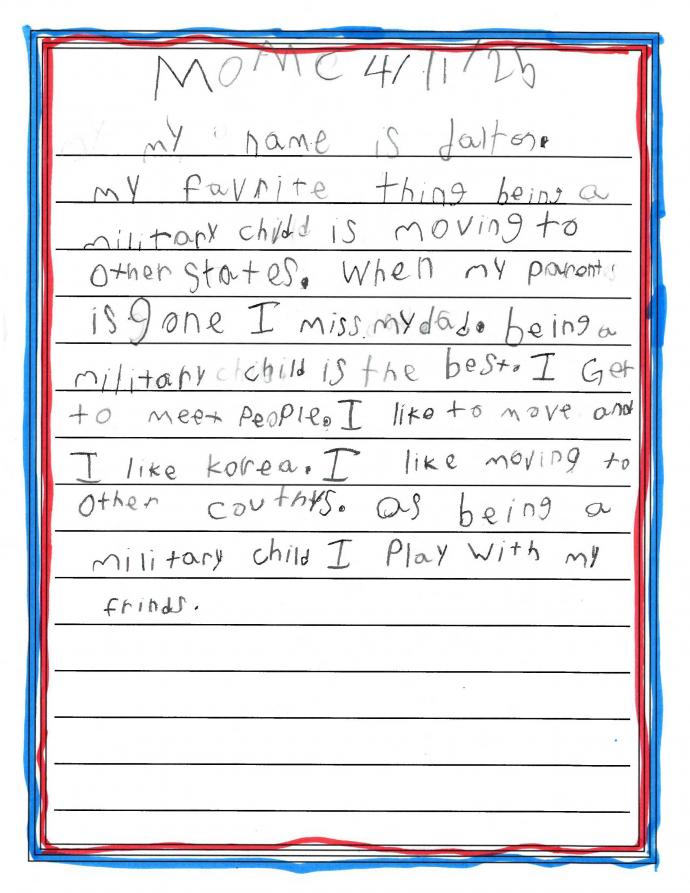 MOMC 4/11/25
my name is dalton.
my favrite thing being a
military child is moving to
other states. When my parents
is gone I miss my dad. being a
military child is the best. I Get
to meet People. I like to move and
I like korea. I like moving to
other couthys. as being a
military child I Play with my
frinds.